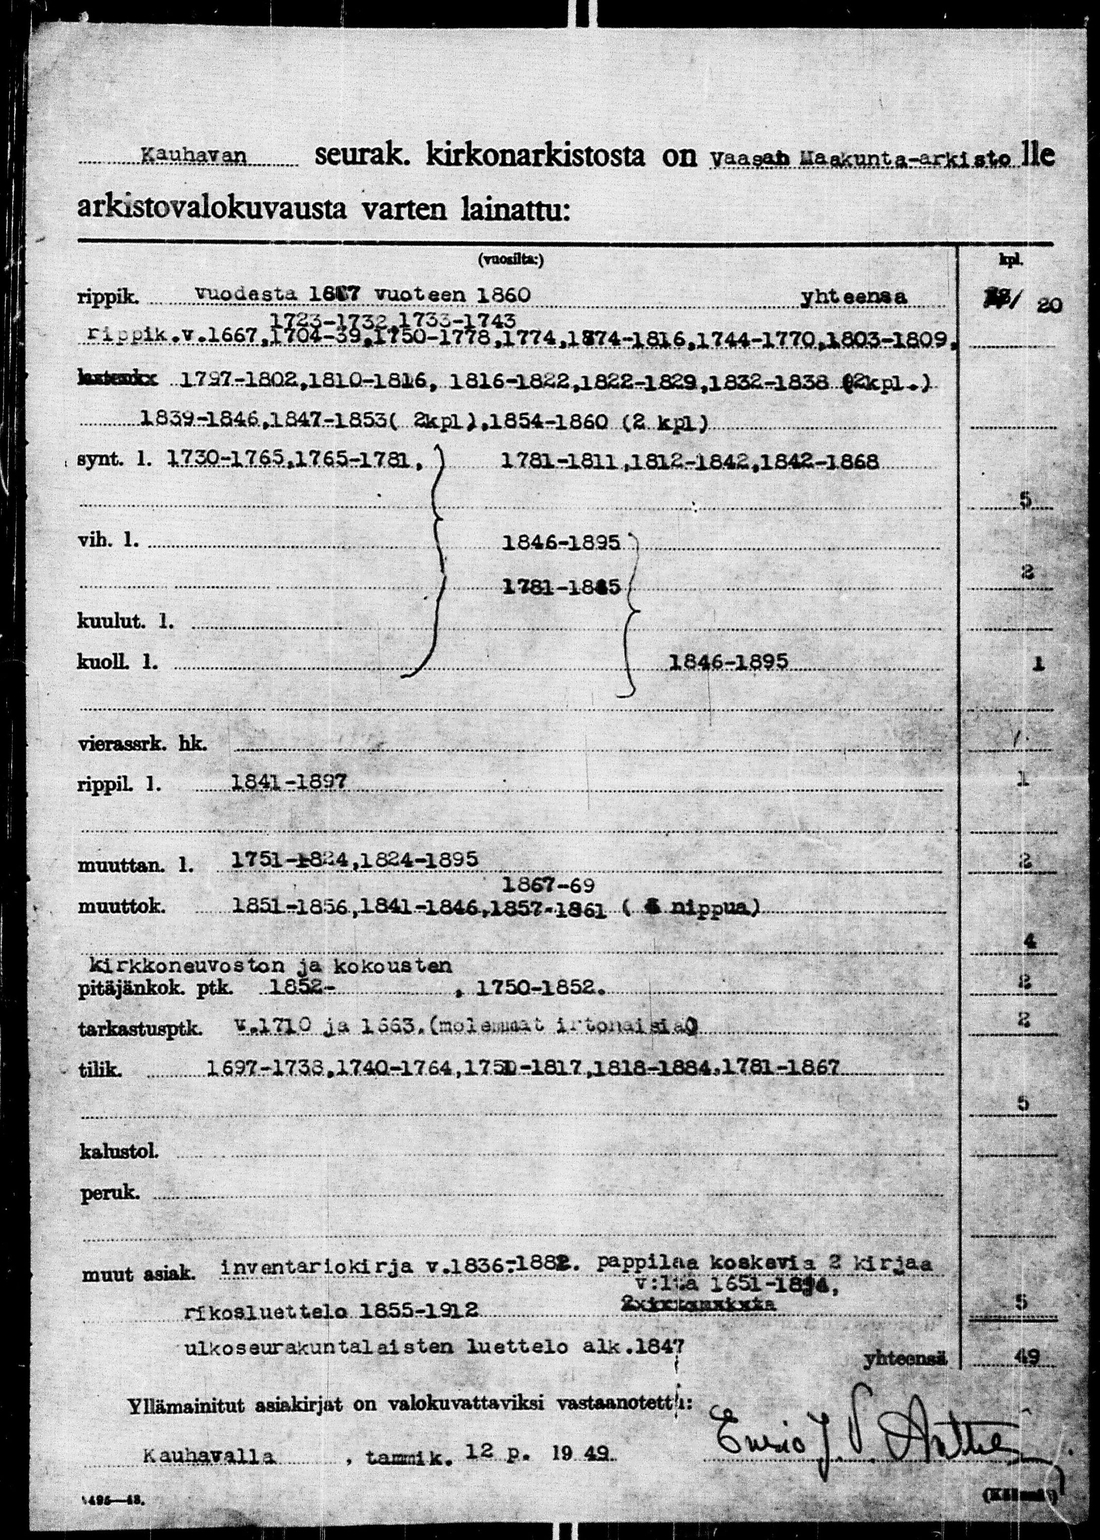 Kauhavan seurak. kirkonarkistosta on Vaasan Maakunta-arkisto lle
arkistovalokuvausta varten lainattu:
(vuosilta:) kpl.
rippik. vuodesta 1667 vuoteen 1860 yhteensä / 20
1723-1732,1733-1743
rippik.v.1667,1704-39,1750-1778,1774,1774-1816,1744-1770,1803-1809,
1797-1802,1810-1816, 1816-1822,1822-1829,1832-1838 (2kpl.)
1839-1846,1847-1853( 2kpl),1854-1860 (2 kpl)
synt. l. 1730-1765,1765-1781, 1781-1811,1812-1842,1842-1868
5
vih. l. 1846-1895
2
1781-1845
kuulut. l.
kuoll. l. 1846-1895 1
vierassrk. hk.
rippil. l. 1841-1897 1
muuttan. l. 1751-1824,1824-1895 2
1867-69
muuttok. 1851-1856,1841-1846,1857-1861 ( nippua)
4
kirkkoneuvoston ja kokousten
pitäjänkok. ptk. 1852- , 1750-1852. 2
tarkastusptk. v.1710 ja 1663.(molemmat irtonaisia) 2
tilik. 1697-1738,1740-1764,1750-1817,1818-1884,1781-1867
5
kalustol.
peruk.
muut asiak. inventariokirja v.1836-1882. pappilaa koskevia 2 kirjaa
v:ltä 1651-1894,
rikosluettelo 1855-1912 5
ulkoseurakuntalaisten luettelo alk.1847
yhteensä 49
Yllämainitut asiakirjat on valokuvattaviksi vastaanotettu:
Kauhavalla , tammik. 12 p. 1949. Ensio J.
1495—48.